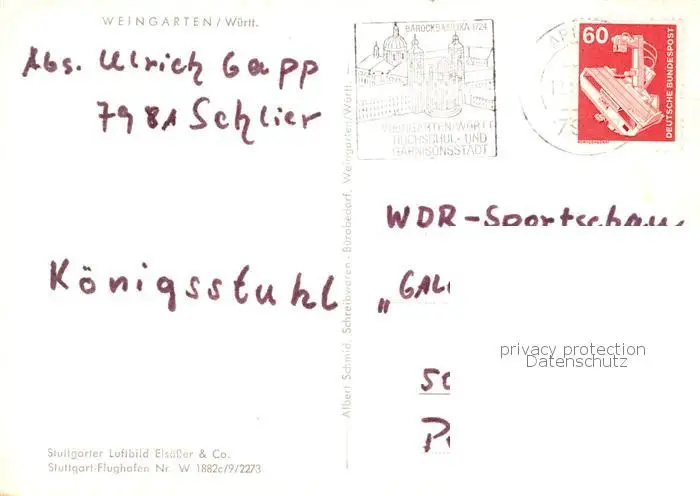 WEINGARTEN/Württ.
Abs. Ulrich Gapp
7981 Schlier
Königsstuhl
Stuttgarter Luftbild Elsäßer & Co.
Stuttgart-Flughafen Nr. W 1882c/9/2273
Albert Schmid, Schreibwaren - Bürobedarf, Weingarten/Württ.
BAROCKBASILIKA 1724
WEINGARTEN/WÜRTT
HOCHSCHUL- UND
GARNISONSSTADT
60
DEUTSCHE BUNDESPOST
WDR-Sportschau
„GAL
50
P
privacy protection
Datenschutz